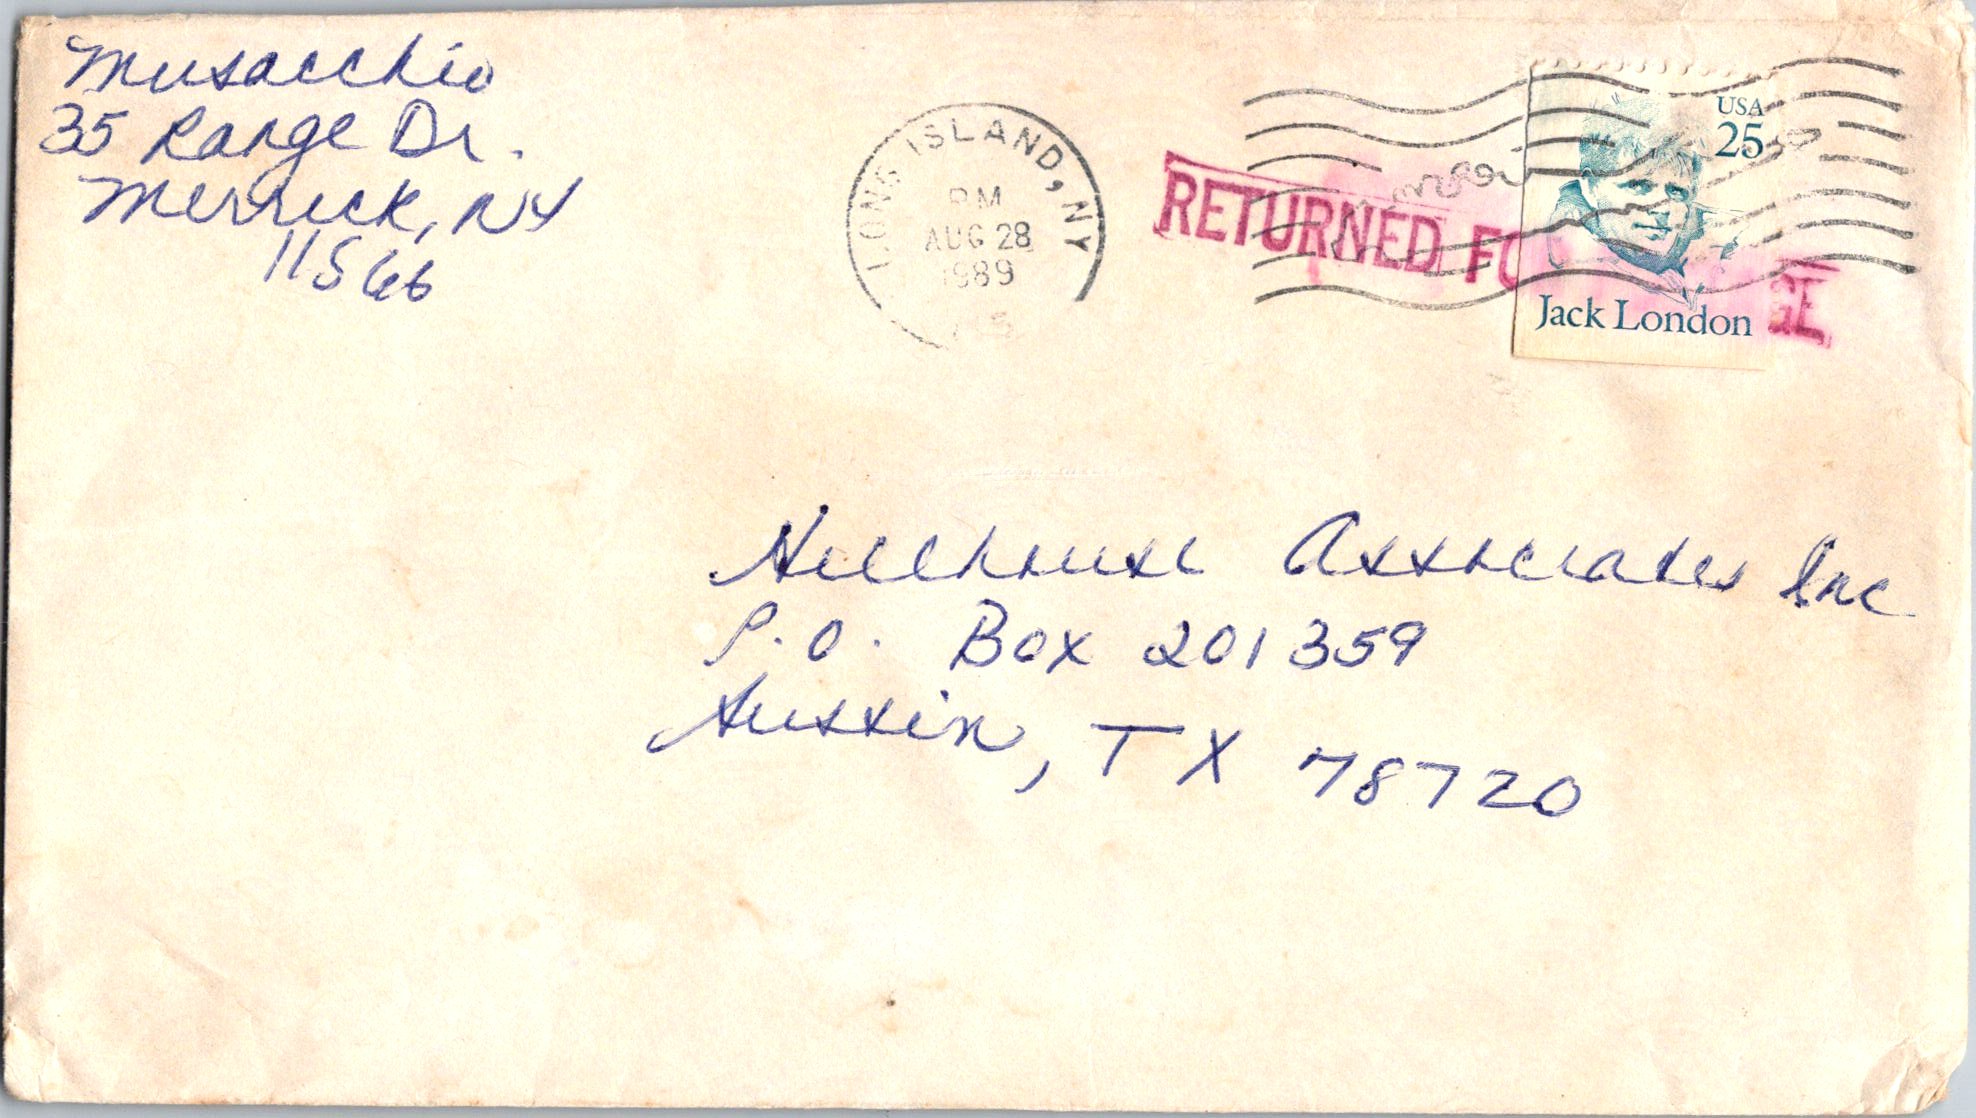 Musacchio
35 Range Dr.
Merrick, NY
11566
LONG ISLAND, NY
PM
AUG 28
1989
RETURNED FO
GE
USA
25
Jack London
Hillhouse Associates Inc
P.O. Box 201359
Austin, TX 78720